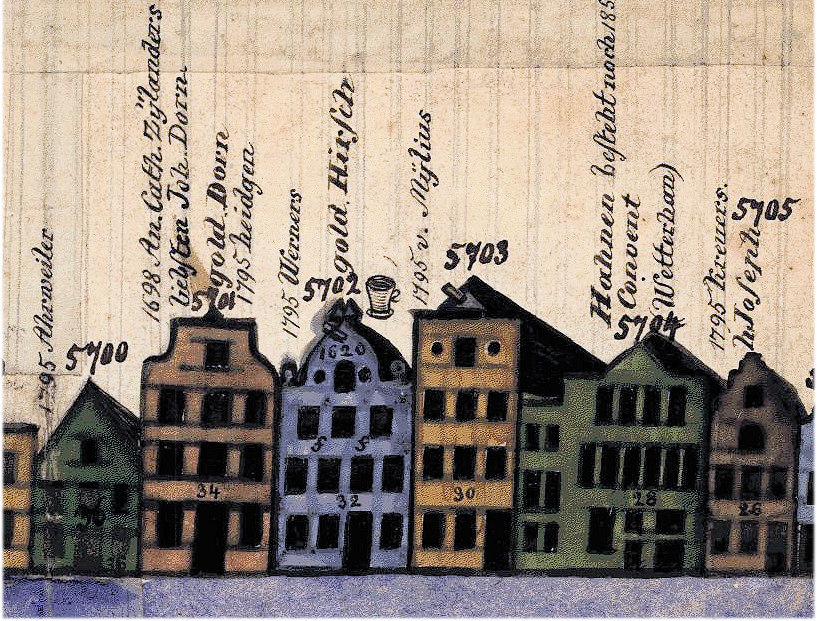 1795 Ahrweiler
5700
1698 An. Cath. Zÿlanders
liebsten Joh. Dorn.
gold. Dorn
1795 heidgen
5701
1795 Werners
gold. Hirsch
5702
1795 v. Mÿlius
5703
Hahnen besteht noch 185
Convent
Wetterhan)
5704
1795 Kreuers.
In Joseph
5705
1620
34
32
30
28
26